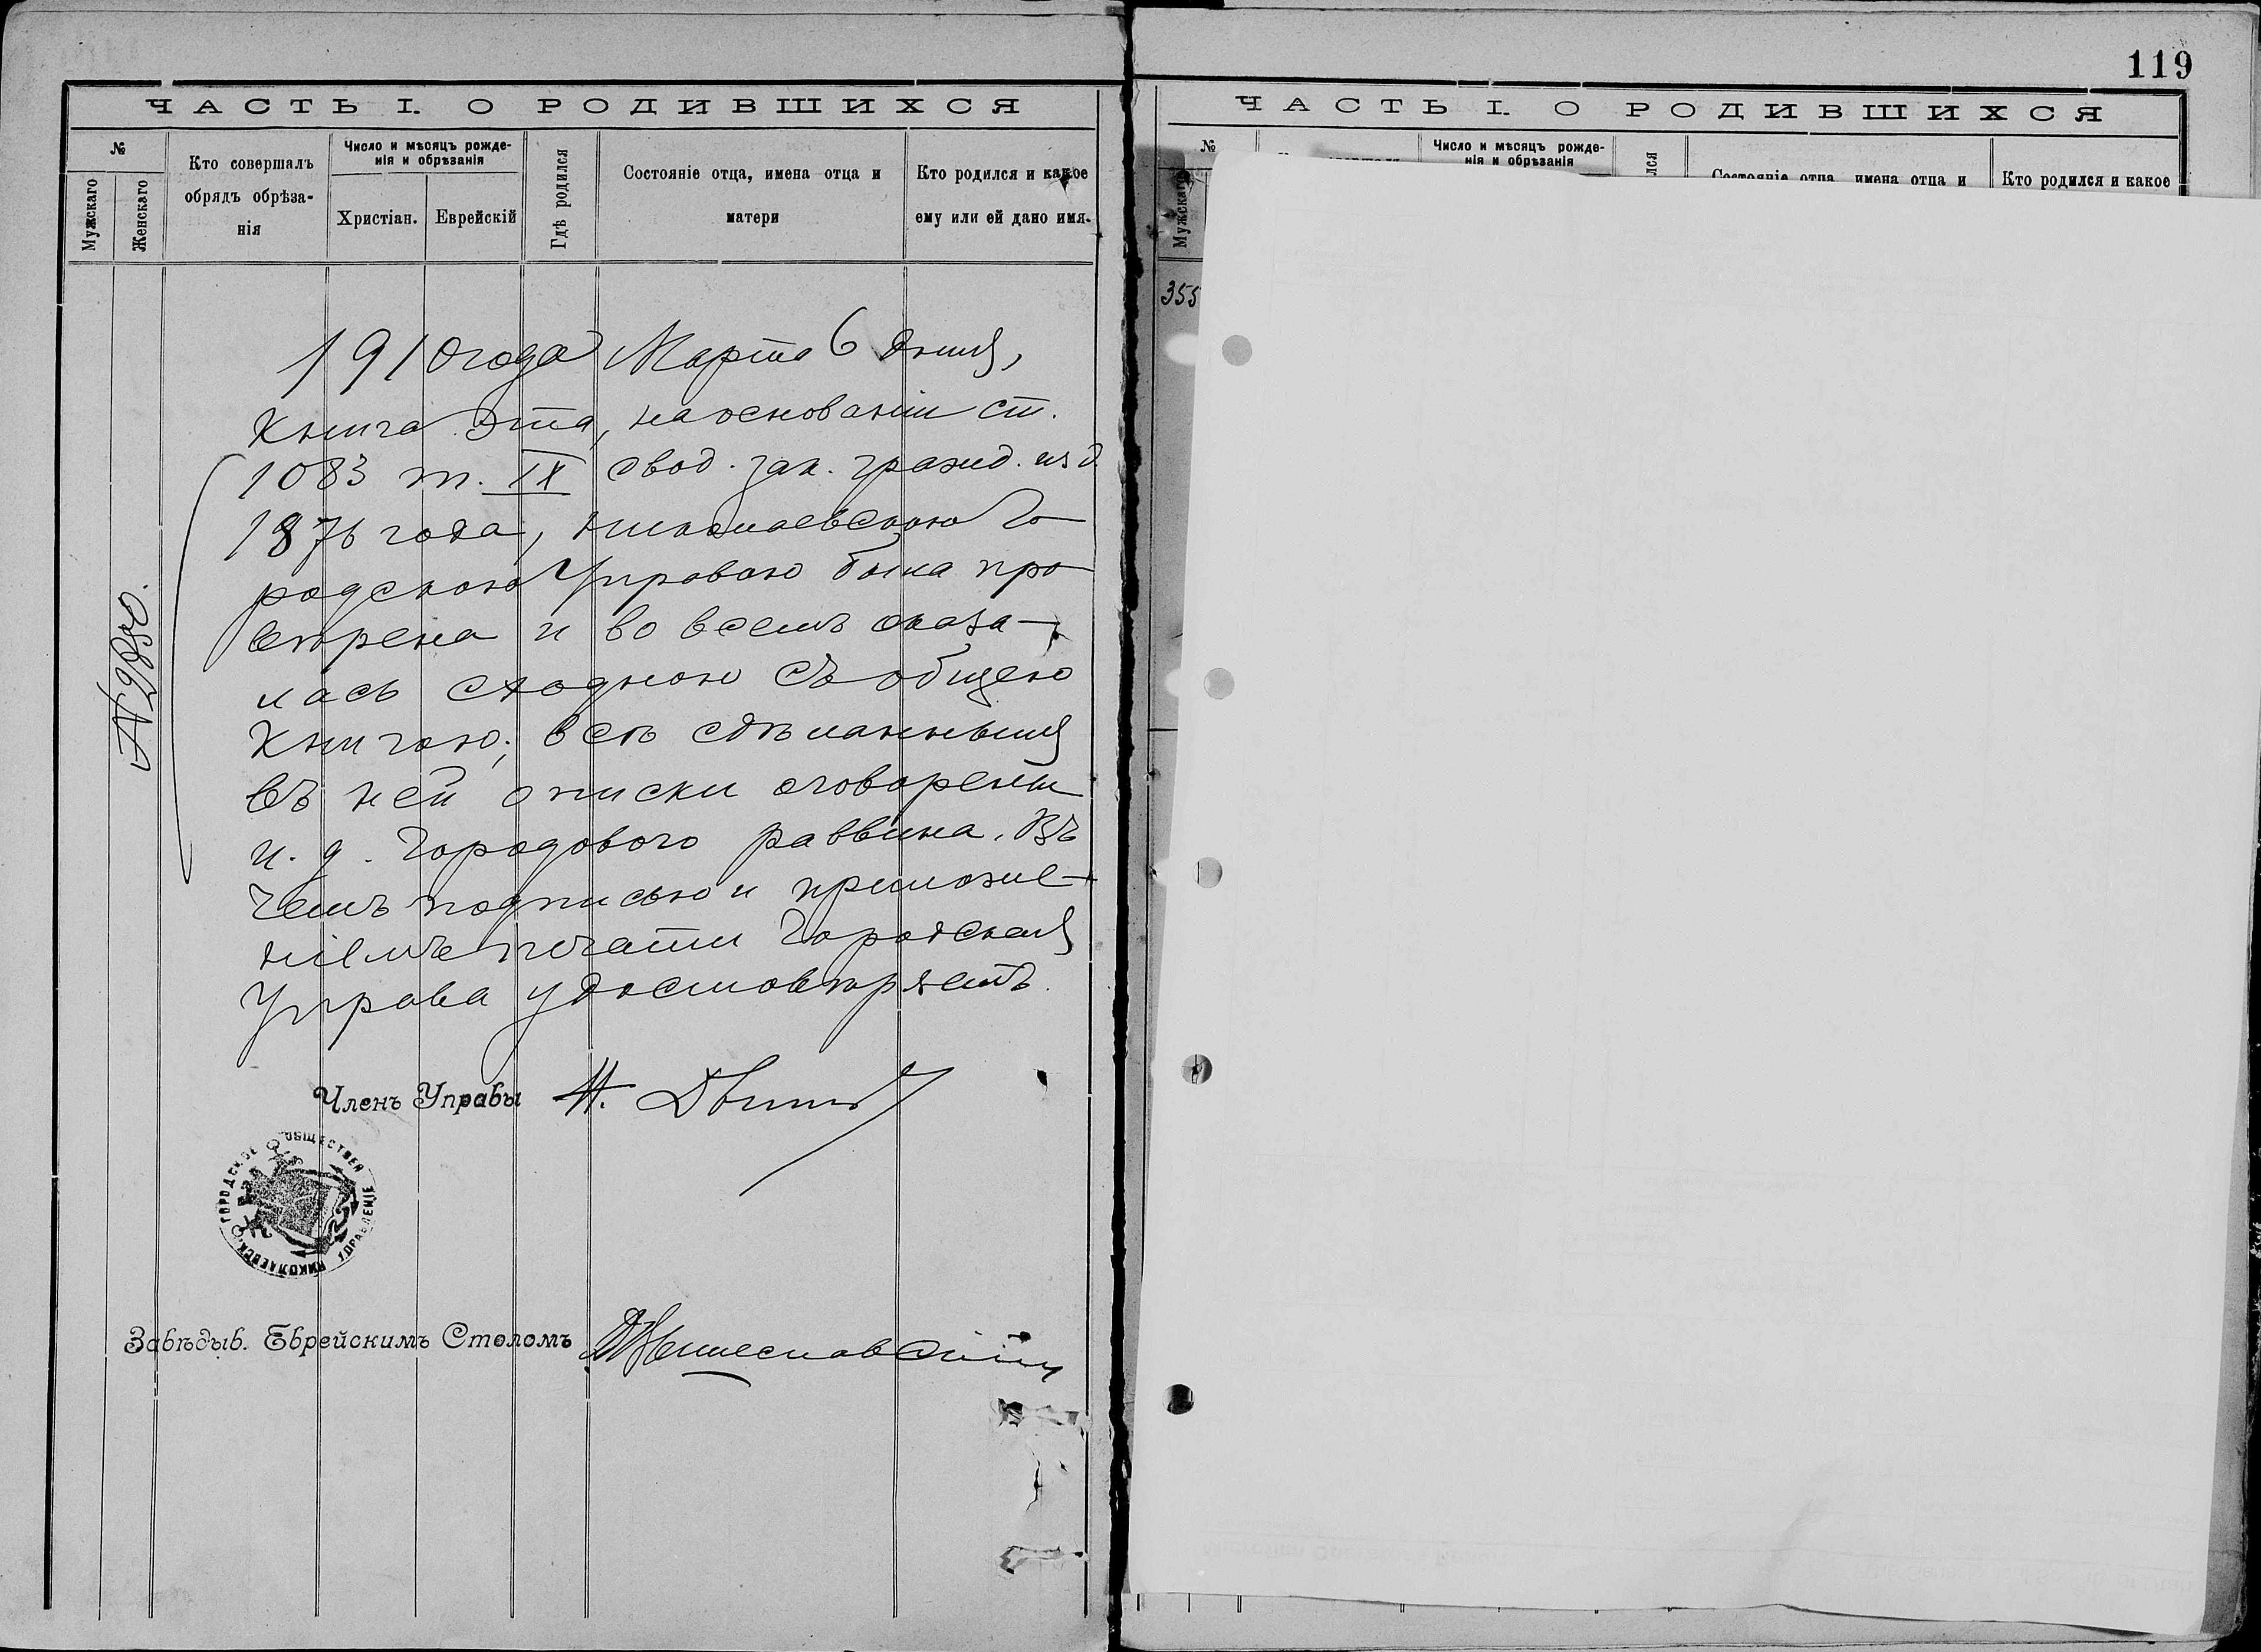 ЧАСТЬ I. О РОДИВШИХСЯ
№
Мужскаго
Женскаго
Кто совершалъ
обрядъ обрѣза-
нія
Число и мѣсяцъ рожде-
нія и обрѣзанія
Христіан.
Еврейскій
Гдѣ родился
Состояніе отца, имена отца и
матери
Кто родился и какое
ему или ей дано имя.
1910 года Марта 6 дня,
Книга эта, на основаніи ст.
1083 т. IX свод. зак. гражд. изд.
1876 года, Николаевскою Го
родскою Управою была про
вѣрена и во всемъ оказа-
лась сходною съ общею
Книгою; всѣ сдѣланныя
въ ней описки оговорены
и. д. Городового раввина. Въ
чемъ подписью и приложе-
ніемъ печати Городская
Управа удостовѣряетъ.
№
Членъ Управы
НИКОЛАЕВСК. ГОРОДСКОЕ ОБЩЕСТВЕН УПРАВЛЕНІЕ
Завѣдыв. Еврейскимъ Столомъ
119
ЧАСТЬ I. О РОДИВШИХСЯ
№
Мужскаго
Число и мѣсяцъ рожде-
нія и обрѣзанія
лся
Состояніе отца, имена отца и
Кто родился и какое
355